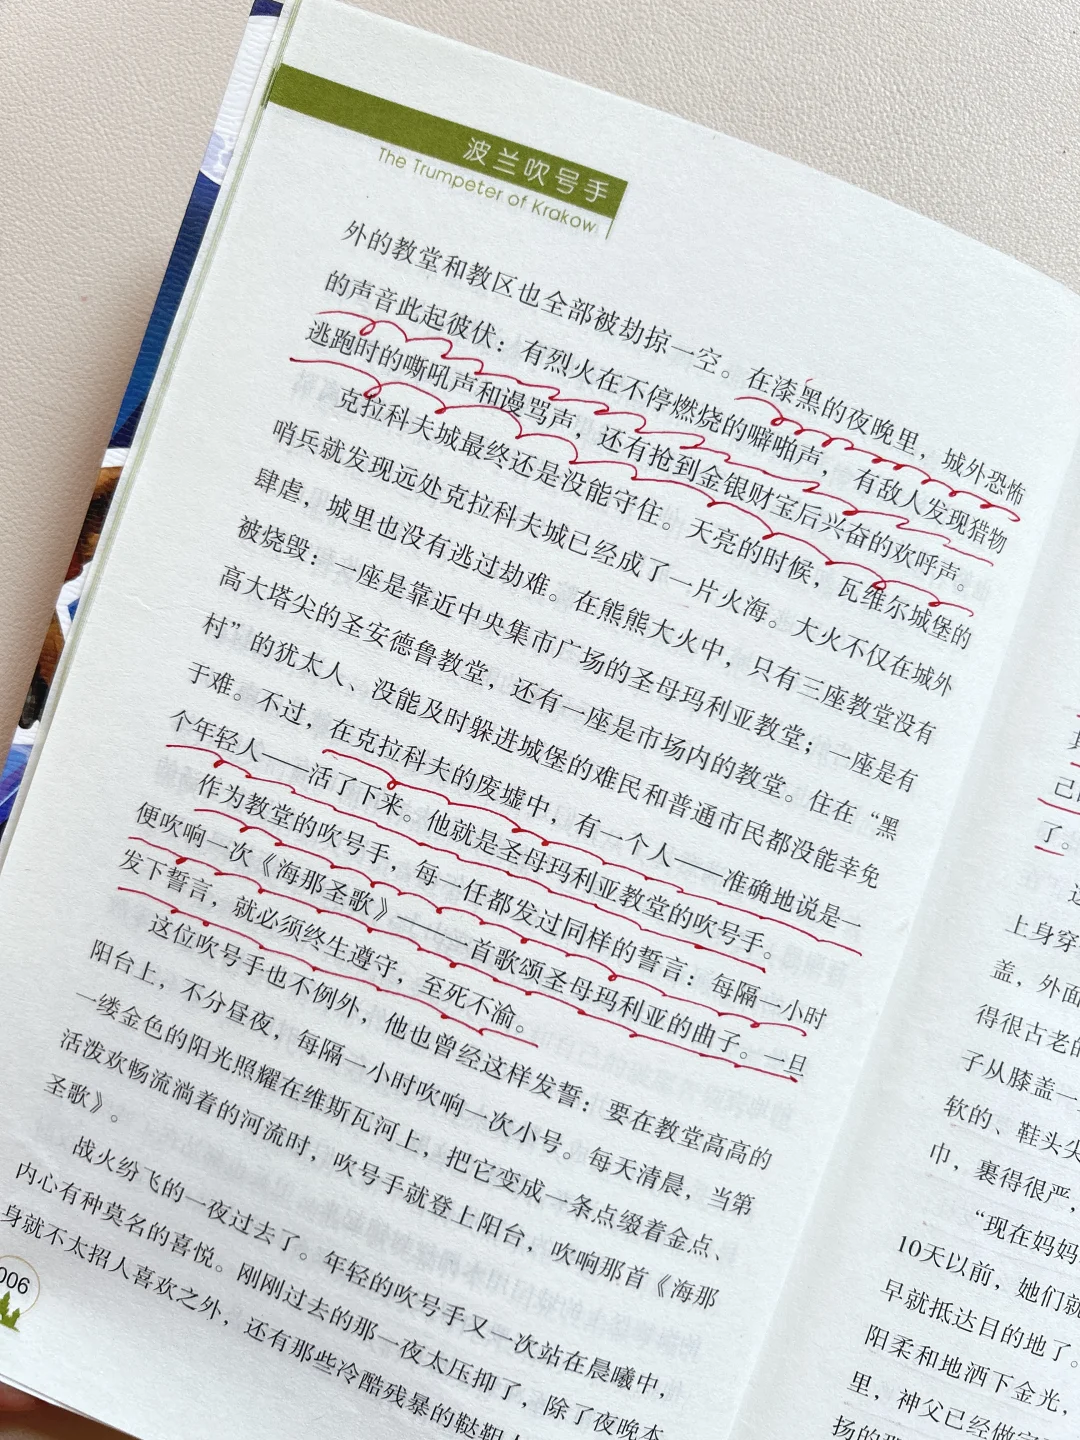 波兰吹号手
The Trumpeter of Krakow
外的教堂和教区也全部被劫掠一空。在漆黑的夜晚里，城外恐怖
的声音此起彼伏：有烈火在不停燃烧的噼啪声，有敌人发现猎物
逃跑时的嘶吼声和谩骂声，还有抢到金银财宝后兴奋的欢呼声。
克拉科夫城最终还是没能守住。天亮的时候，瓦维尔城堡的
哨兵就发现远处克拉科夫城已经成了一片火海。大火不仅在城外
肆虐，城里也没有逃过劫难。在熊熊大火中，只有三座教堂没有
被烧毁：一座是靠近中央集市广场的圣母玛利亚教堂；一座是有
高大塔尖的圣安德鲁教堂，还有一座是市场内的教堂。住在“黑
村”的犹太人、没能及时躲进城堡的难民和普通市民都没能幸免
于难。不过，在克拉科夫的废墟中，有一个人——准确地说是一
个年轻人——活了下来。他就是圣母玛利亚教堂的吹号手。
作为教堂的吹号手，每一任都发过同样的誓言：每隔一小时
便吹响一次《海那圣歌》——一首歌颂圣母玛利亚的曲子。一旦
发下誓言，就必须终生遵守，至死不渝。
这位吹号手也不例外，他也曾经这样发誓：要在教堂高高的
阳台上，不分昼夜，每隔一小时吹响一次小号。每天清晨，当第
一缕金色的阳光照耀在维斯瓦河上，把它变成一条点缀着金点、
活泼欢畅流淌着的河流时，吹号手就登上阳台，吹响那首《海那
圣歌》。
战火纷飞的一夜过去了。年轻的吹号手又一次站在晨曦中，
内心有种莫名的喜悦。刚刚过去的那一夜太压抑了，除了夜晚本
身就不太招人喜欢之外，还有那些冷酷残暴的鞑靼
006
己
了。
上身穿
盖，外面
得很古老的
子从膝盖一
软的、鞋头尖
巾，裹得很严，
“现在妈妈
10天以前，她们就
早就抵达目的地了。
阳柔和地洒下金光，
里，神父已经做
扬的